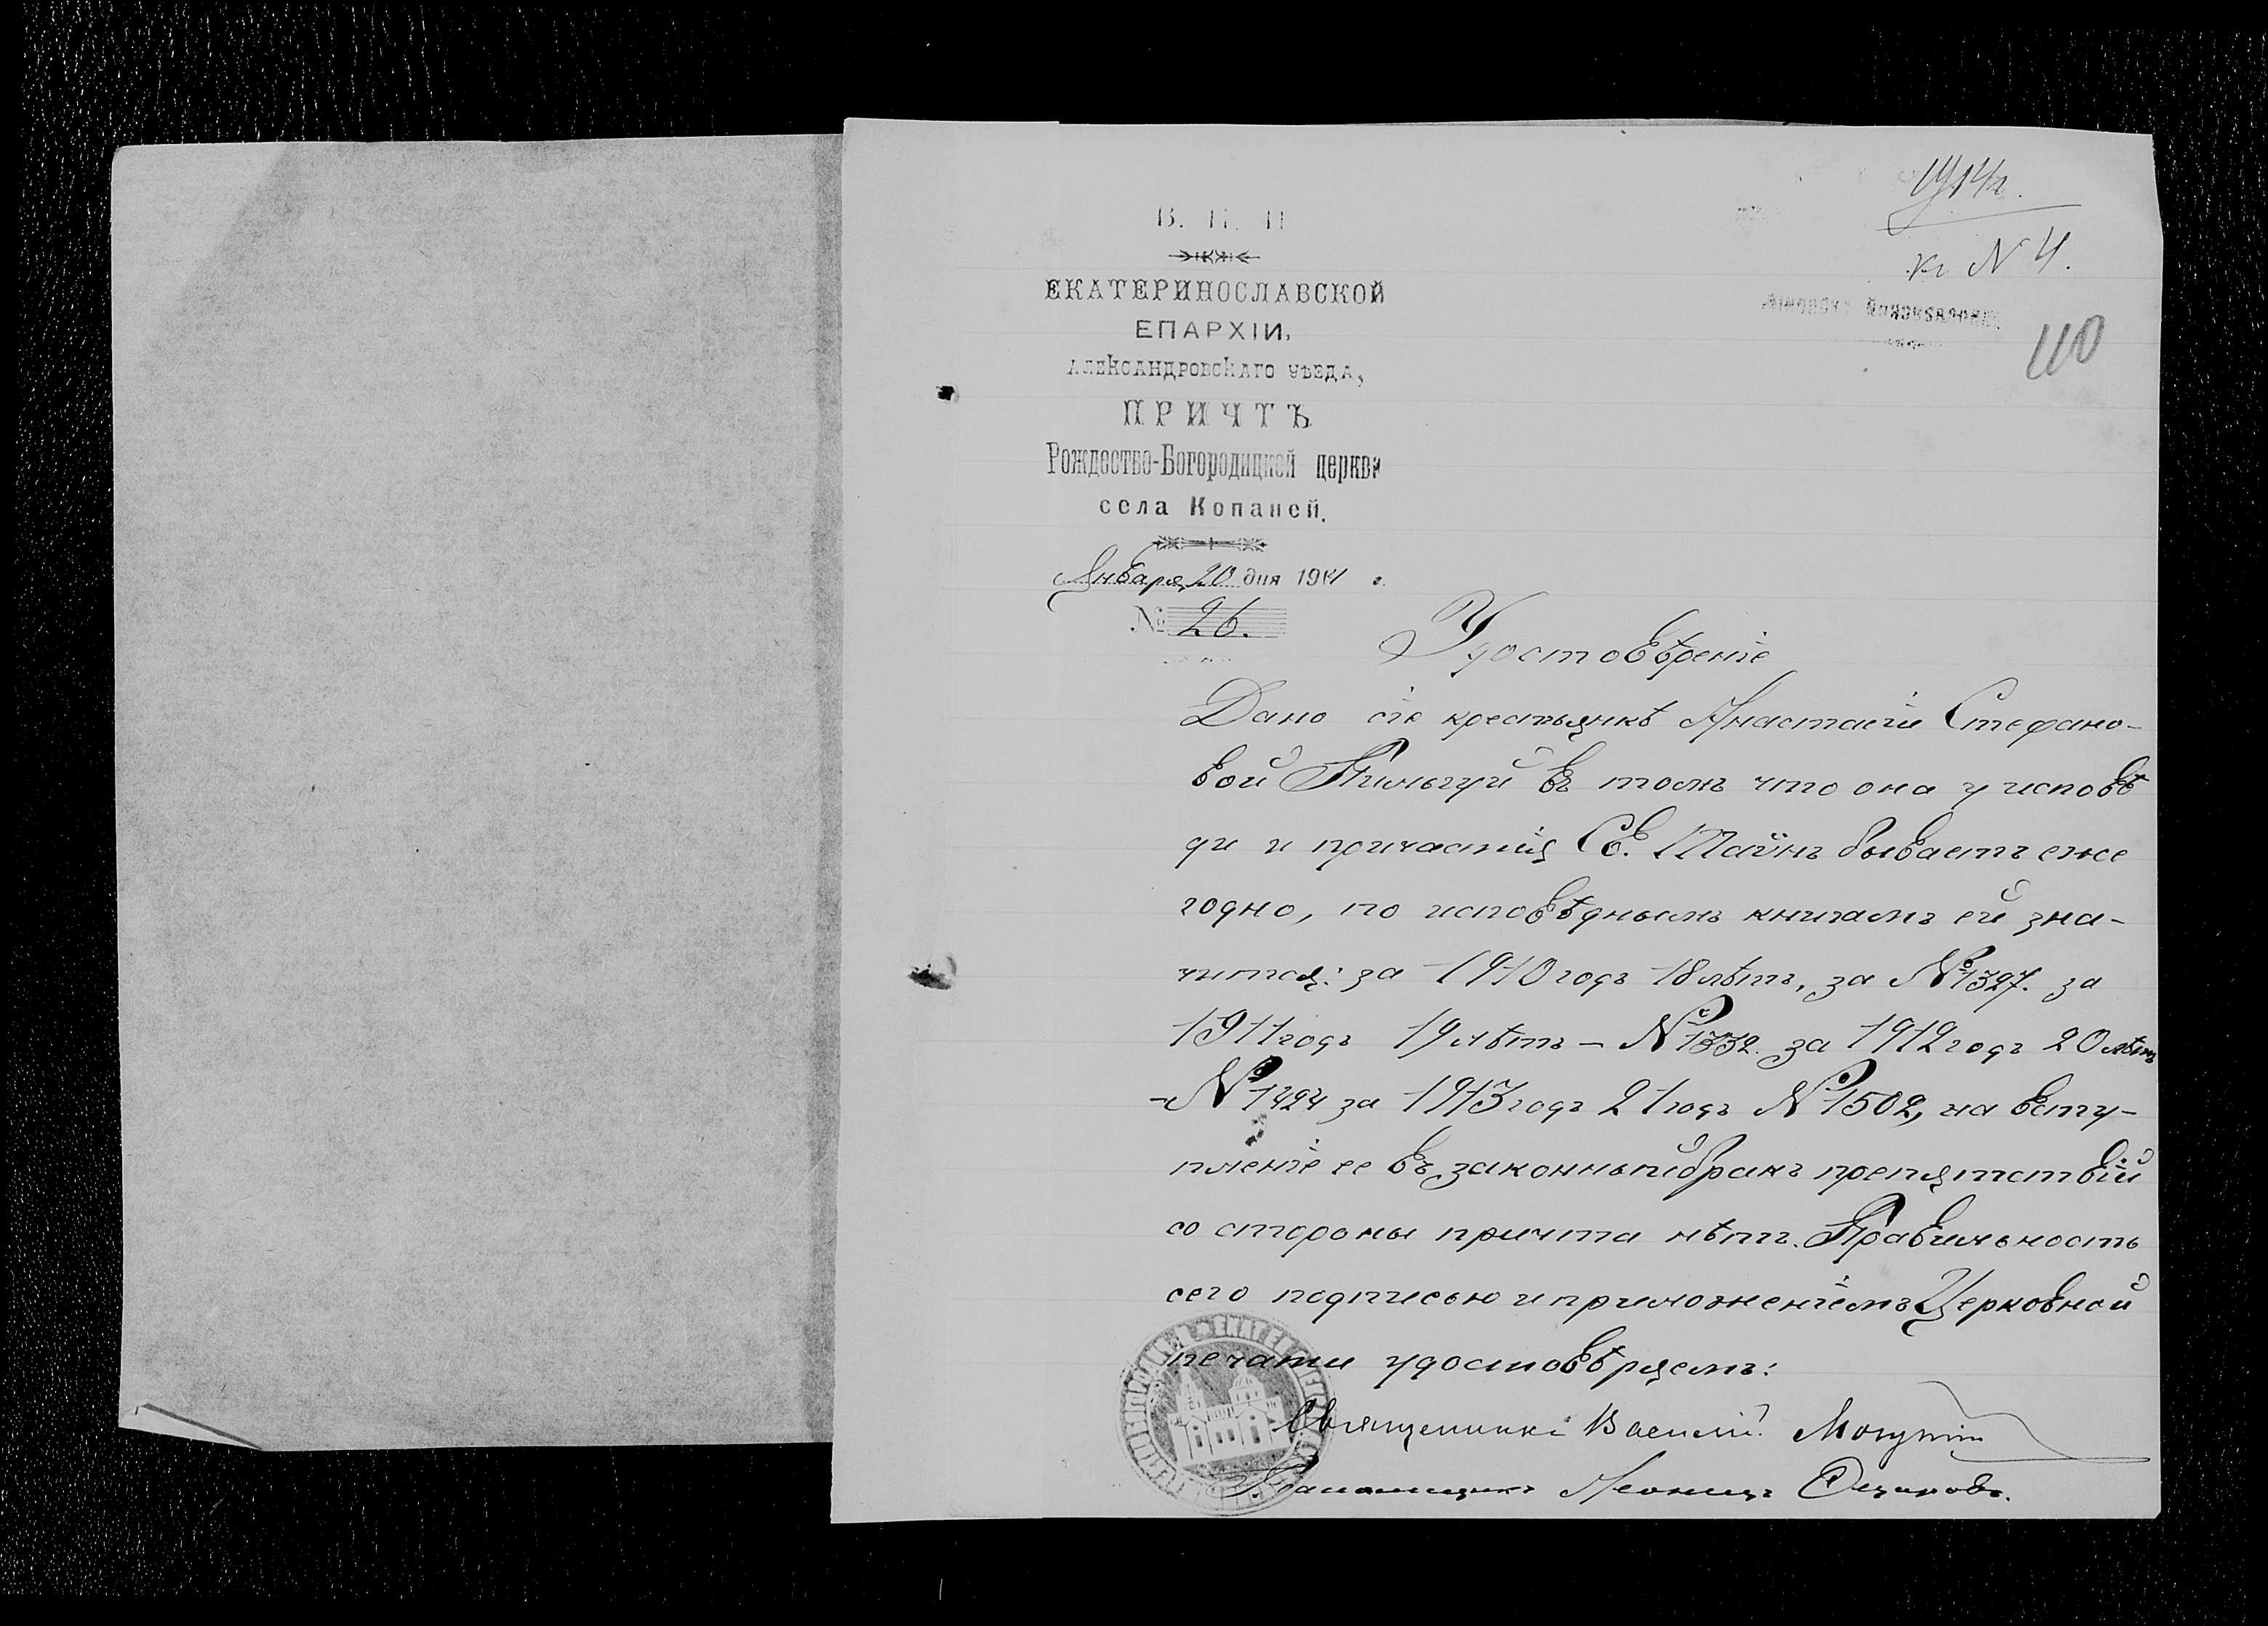 1914 г.
къ № 4.
110
В. П. И
ЕКАТЕРИНОСЛАВСКОЙ
ЕПАРХІИ,
АЛЕКСАНДРОВСКАГО УѢЗДА,
ПРИЧТЪ
Рождество-Богородицкой церкви
села Копаней.
Января 20 дня 1914 г.
№ 26.
Удостовѣреніе
Дано сіе крестьянкѣ Анастасіи Стефано-
вой Пильгуй въ томъ что она у исповѣ
ди и причастія Св. Тайнъ бываетъ еже
годно, по исповѣднымъ книгамъ ей зна-
чится: за 1910 годъ 18 лѣтъ, за № 1327. за
1911 годъ 19 лѣтъ – № 1332. за 1912 годъ 20 лѣтъ
– № 1424 за 1913 годъ 21 годъ № 1502, на всту-
пленіе ее въ законный бракъ препятствій
со стороны причта нѣтъ. Правильность
сего подписью и приложеніемъ Церковной
печати удостовѣряемъ:
Священникъ Василій
Псаломщикъ Леонидъ